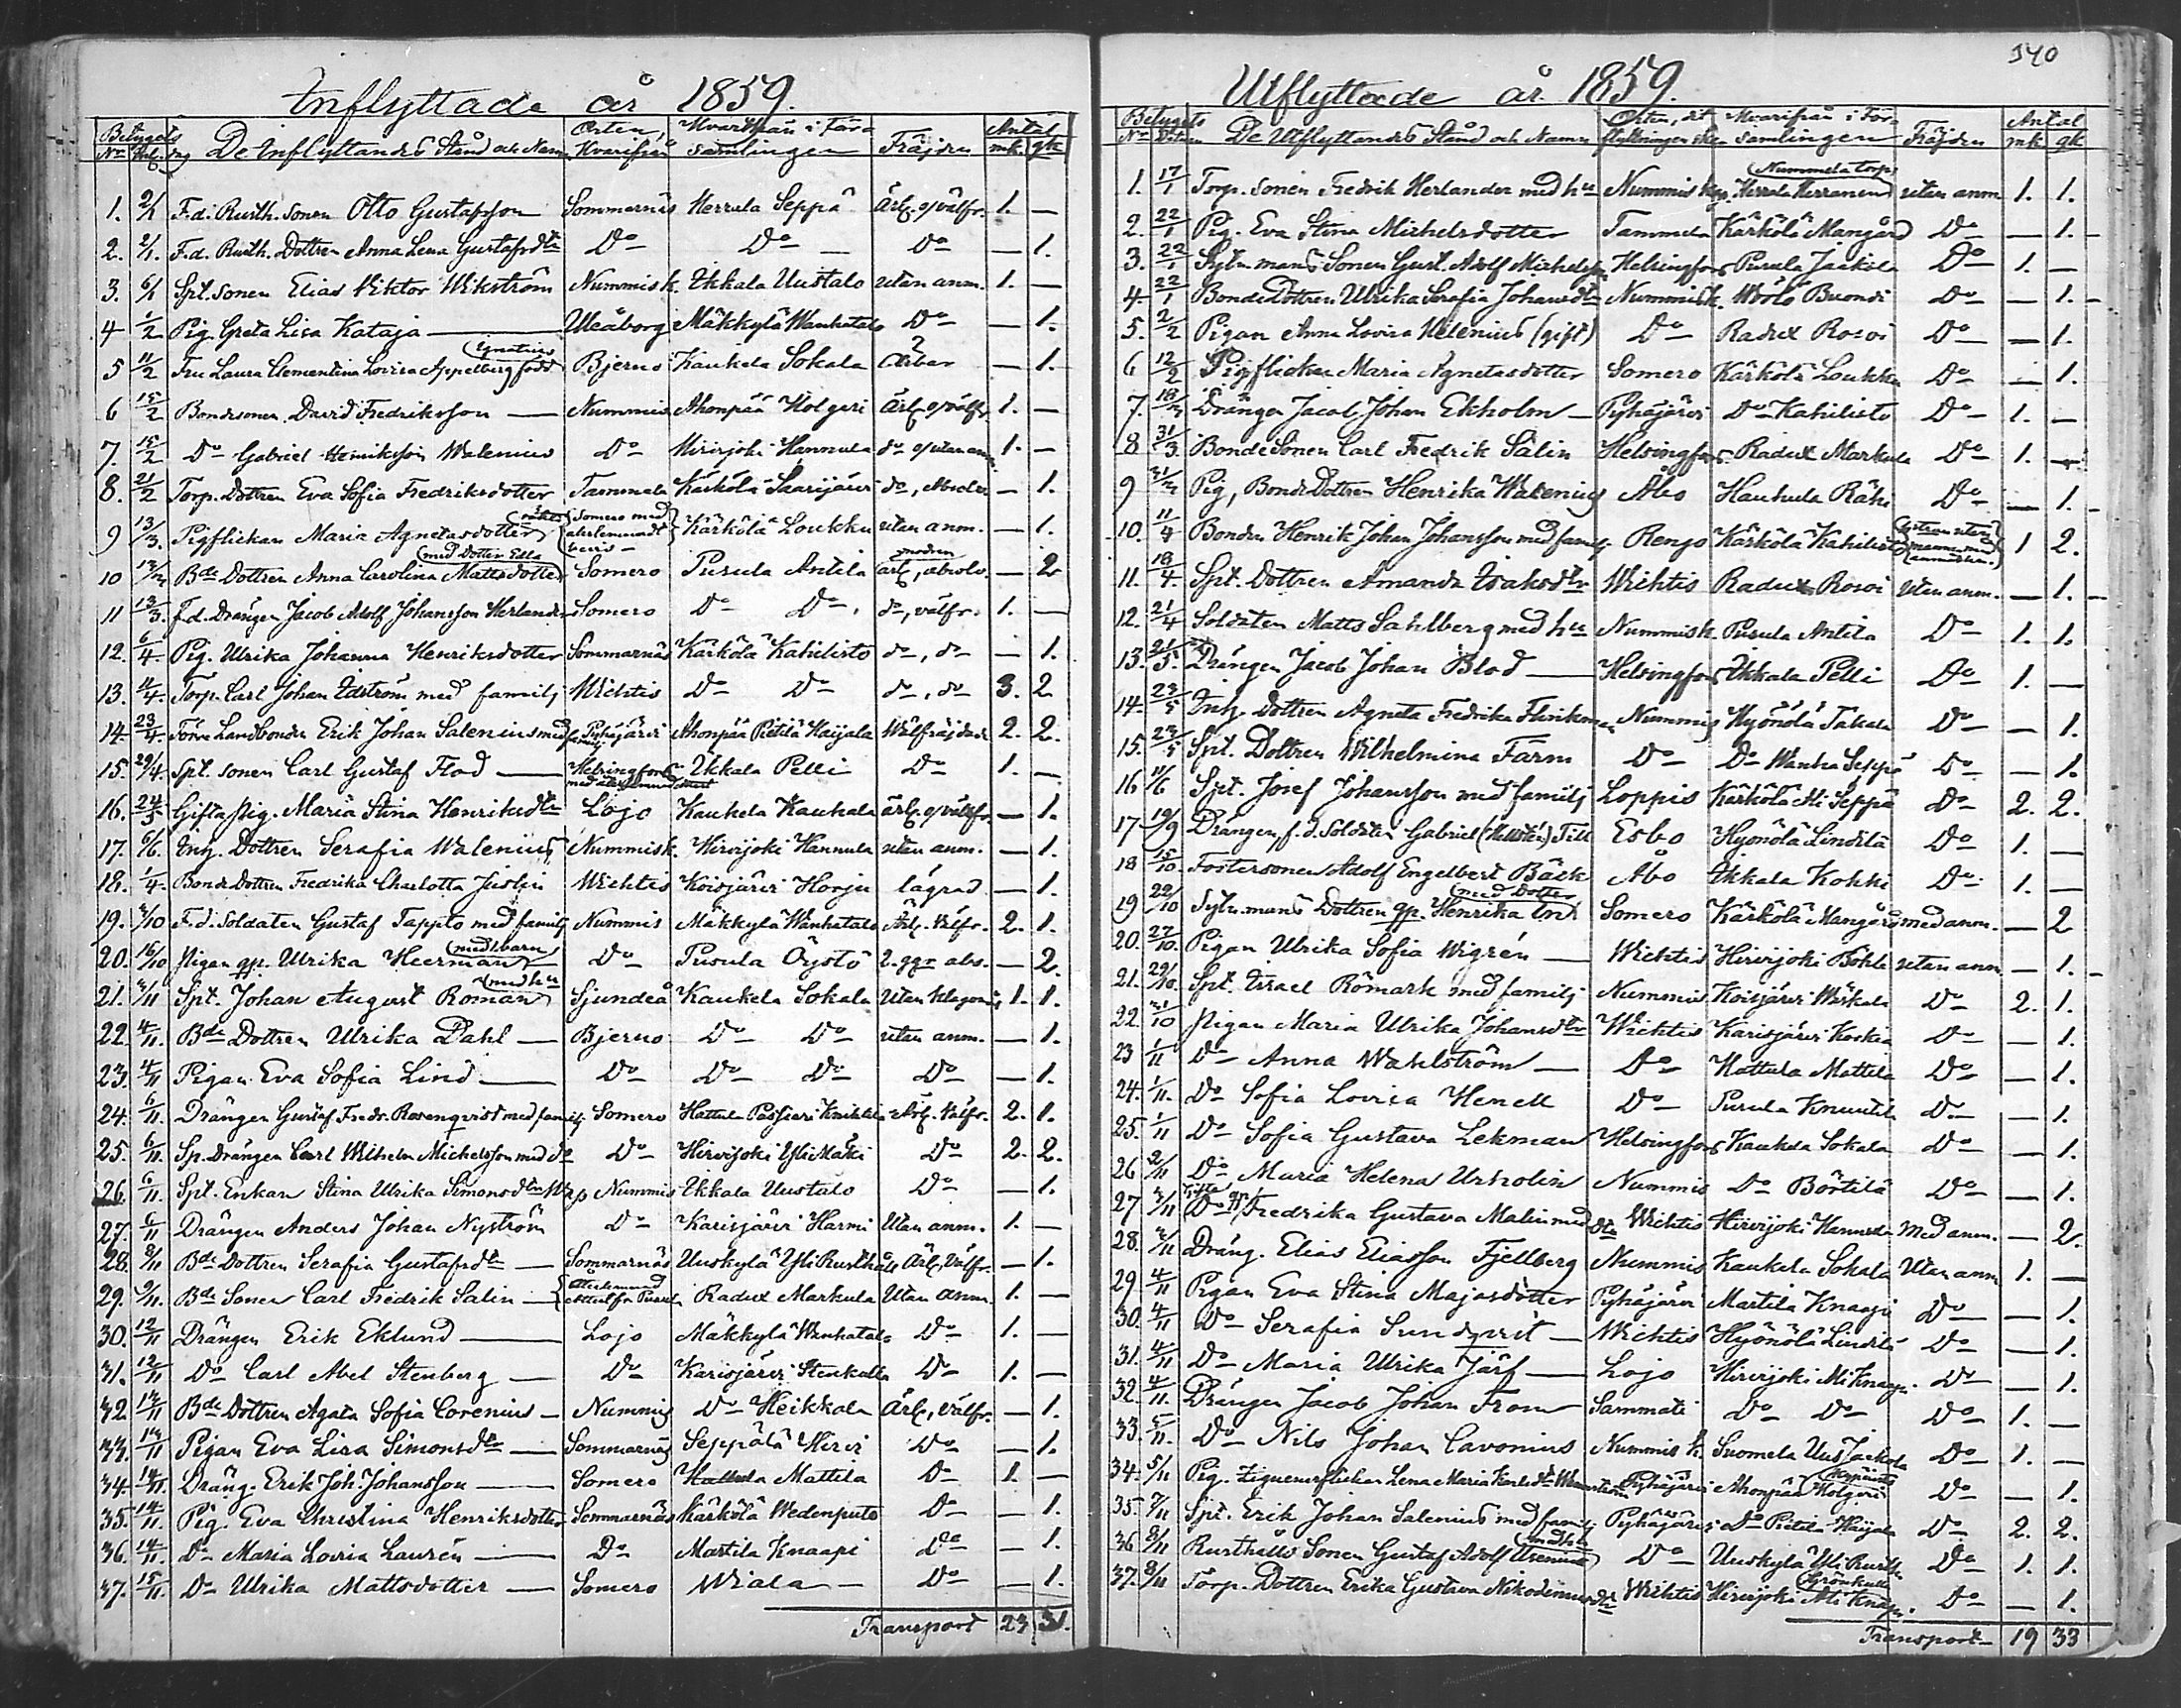 Inflyttade år 1859.
Betygets Orten, Hvarifrån i För- Antal
No Dag De Inflyttandes Stånd och Namn Hvarifrån samlingen Fräjden mk. qk.
1. 2/1 F.d. Rusth. sonen Otto Gustafsson Sommarnäs Herrala Seppä Ärl. o/välfr. 1. —
2. 2/1. F.d. Rusth. Dottren Anna Lena Gustafsdtr Do Do Do — 1.
3. 6/1 Spt. sonen Elias Viktor Wikström Nummis k. Ikkala Uustalo utan anm. 1. —
4 1/2 Pig. Greta Lisa Kataja — Uleåborg Mäkkylä Wanhatalo Do — 1.
Ignatius
5 11/2 Fru Laura Clementina Lovisa Appelberg född Bjerno Kaukela Sokala — 1.
6 15/2 Bondesonen David Fredriksson — Nummis Ahonpää Holgeri Ärl. o/välfr. 1. —
7. 15/2 Do Gabriel Henriksson Walenius Do Hirvijoki Hannula do o/utan anm. 1. —
8. 21/2 Torp. Dottren Eva Sofia Fredriksdotter Tammela Kärkölä Saarijärvi do, absolv. — 1.
9 13/3. Pigflickan Maria Agnetasdotter Somero med återlemnadt bevis Kärkölä Loukku utan anm. — 1.
med Dotter Edla modren
10 13/3 Bde Dottren Anna Carolina Mattsdotter Somero Pusula Antila ärl., absolv. — 2
11 13/3. F.d. Drängen Jacob Adolf Johansson Herlander Somero Do Do do, välfr. 1. —
12. 6/4. Pig. Ulrika Johanna Henriksdotter Sommarnäs Kärkölä Kahilisto do, do — 1.
13. 11/4. Torp. Carl Johan Edström med familj Wichtis Do Do do, do 3. 2
14. 23/4. Förre Landbonden Erik Johan Salenius med familj Pyhäjärvi Ahonpää Pietilä Haijala Wälfräjdade 2. 2.
15. 29/4. Spt. sonen Carl Gustaf Flod — Helsingfors Ikkala Pelli Do 1. —
16. 24/5 Gifta pig. Maria Stina Henriksdtr Lojo Kaukela Kaukela ärl. o/välfr. — 1.
17. 6/6. Inh. Dottren Serafia Walenius Nummis k. Hirvijoki Hannula utan anm. — 1.
18. 1/4. Bonde Dottren Fredrika Charlotta Juslin Wichtis Koisjärvi Horju lägrad — 1.
19. 3/10 F.d. Soldaten Gustaf Tappto med familj Nummis Mäkkylä Wanhatalo Ärl. Välfr. 2. 1.
med 1. barn
20. 16/10 Pigan qp. Ulrika Heerman Do Pusula Öystö 2. ggr abs. — 2.
med hu
21. 3/11 Spt. Johan August Roman Sjundeå Kaukela Sokala Utan klagomål 1. 1.
22. 4/11. Bde Dottren Ulrika Dahl — Bjerno Do Do utan anm. — 1.
23. 4/11 Pigan Eva Sofia Lind — Do Do Do Do — 1.
24. 6/11. Drängen Gustaf Fredr. Rosenqvist med familj Somero Hattula Passiari Ärl. Välfr. 2. 1.
25. 6/11. Sp. Drängen Carl Wilhelm Michelsson med do Do Hirvijoki Yli Mäki Do 2. 2.
26. 6/11. Spt. Enkan Stina Ulrika Simonsdtr Nummis Ikkala Uustalo Do — 1.
27. 6/11 Drängen Anders Johan Nyström Do Karisjärvi Harmi Utan anm. 1. —
28. 8/11 Bde Dottren Serafia Gustafsdtr — Sommarnäs Uuskylä Yli Rusthåll Ärl., Välfr. — 1.
29. 9/11. Bde Sonen Carl Fredrik Salin — Återlemnad Radux Markula Utan anm. 1. —
30. 12/11 Drängen Erik Eklund — Lojo Mäkkylä Wanhatalo Do 1. —
31. 12/11 Do Carl Abel Stenberg — Do Karisjärvi Stenkulla Do 1. —
32. 13/11 Bde Dottren Agata Sofia Corenius — Nummis Do Heikkala Ärl., Välfr. — 1.
33. 13/11 Pigan Eva Lisa Simonsdtr — Sommarnäs Seppälä Hirvi Do — 1.
34. 14/11. Dräng. Erik Joh. Johansson — Somero Hattula Mattila Do 1. —
35. 14/11. Pig. Eva Christina Henriksdotter Sommarnäs Kärkölä Wedenputo Do — 1.
36. 14/11. Do Maria Lovisa Laurén — Do Martila Knaapi Do — 1.
37. 15/11. Do Ulrika Mattsdotter — Somero Wiala — Do — 1.
Transport 23 31.
340
Utflyttade år. 1859.
Betygets Orten, dit Hvarifrån i För- Antal
No Datum De Utflyttandes Stånd och Namn flyttningen sker samlingen Fräjden mk qk
Nummela torp
1. 17/1 Torp. sonen Fredrik Herlander med hu Nummis k. Herrala Herranen utan anm 1. 1.
2. 22/1 Pig. Eva Stina Michelsdotter Tammela Kärkölä Mangård Do — 1.
3. 22/1 Sytn. mans Sonen Gust. Adolf Michelsson Helsingfors Pusula Jaakola Do 1. —
4. 22/1 Bonde Dottren Ulrika Serafia Johansdtr Nummis k. Wörlö Buondi Do — 1.
5. 2/2 Pigan Anna Lovisa Helenius (gift) Do Radux Rosvi Do — 1.
6 12/2 Pigflickan Maria Agnetasdotter Somero Kärkölä Loukku Do — 1.
7. 18/3 Drängen Jacob Johan Ekholm — Pyhäjärvi Do Kahilisto Do 1. —
8 31/3. Bonde Sonen Carl Fredrik Sälin Helsingfors Radux Markula Do 1. —
9 31/3 Pig, Bonde Dottren Henrika Walenius Åbo Haukula Rähi Do — 1.
10. 11/4 Bonden Henrik Johan Johansson med familj Rengo Kärkölä Kahilisto 1 2.
11. 18/4. Spt. Dottren Amanda Isaksdtr Wichtis Radux Rosvi Utan anm. — 1.
12. 21/4 Soldaten Matts Sahlberg med hu Nummis k. Pusula Antila Do 1. 1.
13. 21/5. Drängen Jacob Johan Blod — Helsingfors Ikkala Pelli Do 1. —
14. 23/5 Inh. Dottren Agneta Fredrika Flinkman Nummis Hyönölä Takala Do — 1.
15. 23/5 Spt. Dottren Wilhelmina Färm Do Do Wanha Seppä Do — 1.
16 11/6 Spt. Josef Johansson med familj Loppis Kärkölä Ali Seppä Do 2. 2.
17 19/9 Drängen, f.d. Soldaten Gabriel (Hellstén) Till Esbo Hyönölä Lindilä Do 1. —
18 15/10 Fostersonen Adolf Engelbert Bäck Åbo Ikkala Kohki Do 1. —
med Dotter
19 22/10 Sytn. mans Dottren qp. Henrika Somero Kärkölä Mangård med anm. — 2
20. 27/10. Pigan Ulrika Sofia Wigrén — Wichtis Hirvijoki Böhle utan anm — 1.
21. 29/10. Spt. Israel Römark med familj Nummis Koisjärvi Wäskala Do 2. 1.
22. 31/10 Pigan Maria Ulrika Johansdtr Wichtis Karisjärvi Koskia Do — 1.
23 1/11 Do Anna Wahlström — Do Hattula Mattila Do — 1.
24. 1/11. Do Sofia Lovisa Henell Do Pusula Knuutila Do — 1.
25. 1/11 Do Sofia Gustava Lekman Helsingfors Kaukela Sokala Do — 1.
26 2/11 Do Maria Helena Urholin Nummis Do Börtilä Do — 1.
Gifta
27 3/11 Do qp. Fredrika Gustava Malin med dtr Wichtis Hirvijoki Hannula Med anm. — 2.
28. 3/11 Dräng. Elias Eliasson Fjellberg Nummis Kaukela Sokala Utan anm 1. —
29 4/11 Pigan Eva Stina Majasdotter Pyhäjärvi Martila Knaapi Do — 1.
30. 4/11 Do Serafia Sundqvist — Wichtis Hyönölä Lindilä Do — 1.
31. 4/11 Do Maria Ulrika Järf — Lojo Hirvijoki Ali Knaapi Do — 1.
32. 4/11. Drängen Jacob Johan From Sammati Do Do Do 1. —
33. 5/11. Do Nils Johan Cavonius Nummis k. Suomela Uus Jaakola Do 1. —
34. 5/11 Pig. Ziguenarflickan Lena Maria Karlsdtr Pyhäjärvi Ahonpää Holgeri Do — 1.
35. 7/11 Spt. Erik Johan Salenius med familj Pyhäjärvi Do Pietilä Haijala Do 2. 2.
med hu
36 8/11 Rusthålls Sonen Gustaf Adolf Urenius Do Uuskylä Yli Rusth. Do 1. 1.
Grönkulla
37. 8/11 Torp. Dottren Erika Gustava Nikodemusdtr Wichtis Hirvijoki Ali Knaapi. Do — 1.
Transport 19 33